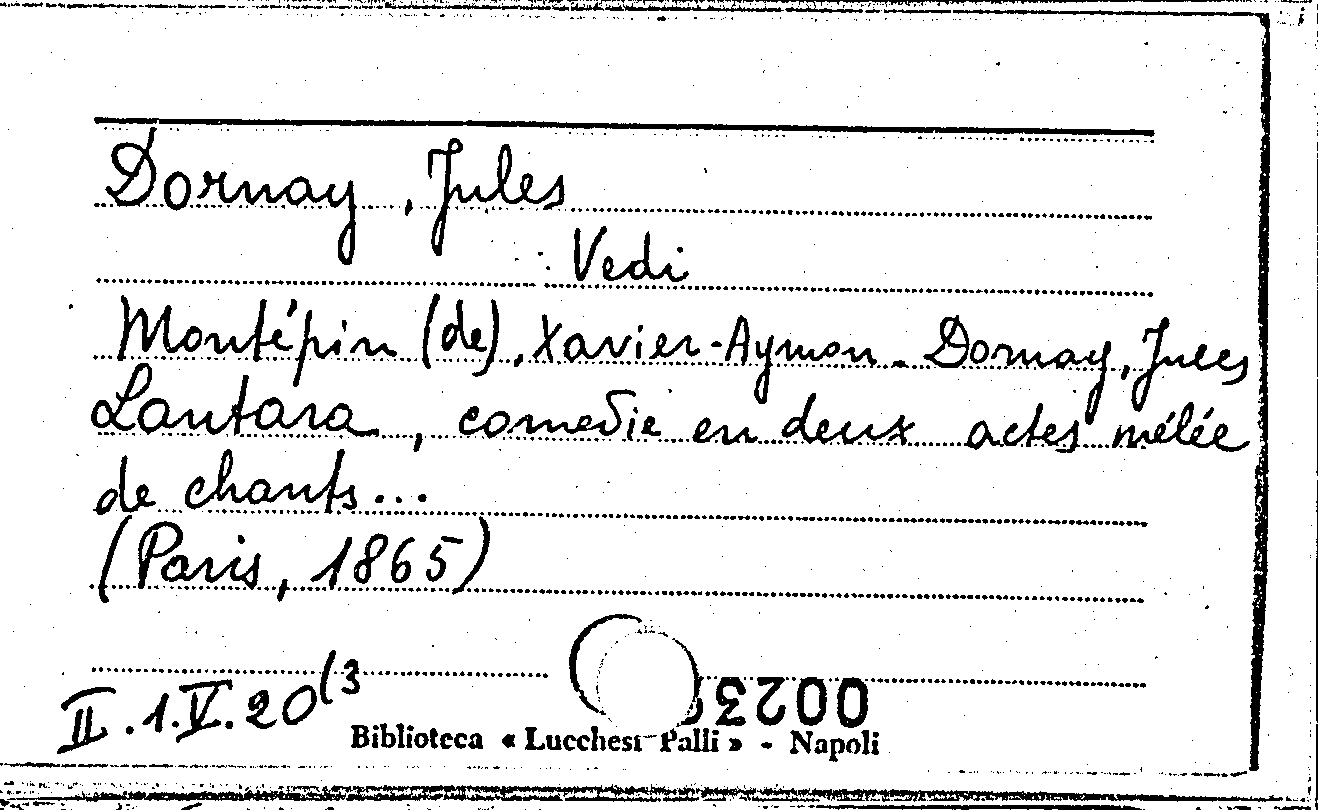 Dornay, Jules
Vedi
Montépin (de), Xavier-Aymon. Dornay, Jules
Lantara, comedie en deux actes mélée
de chants...
(Paris, 1865)
II.1.V.20(3
Biblioteca « Lucchesi Palli » - Napoli